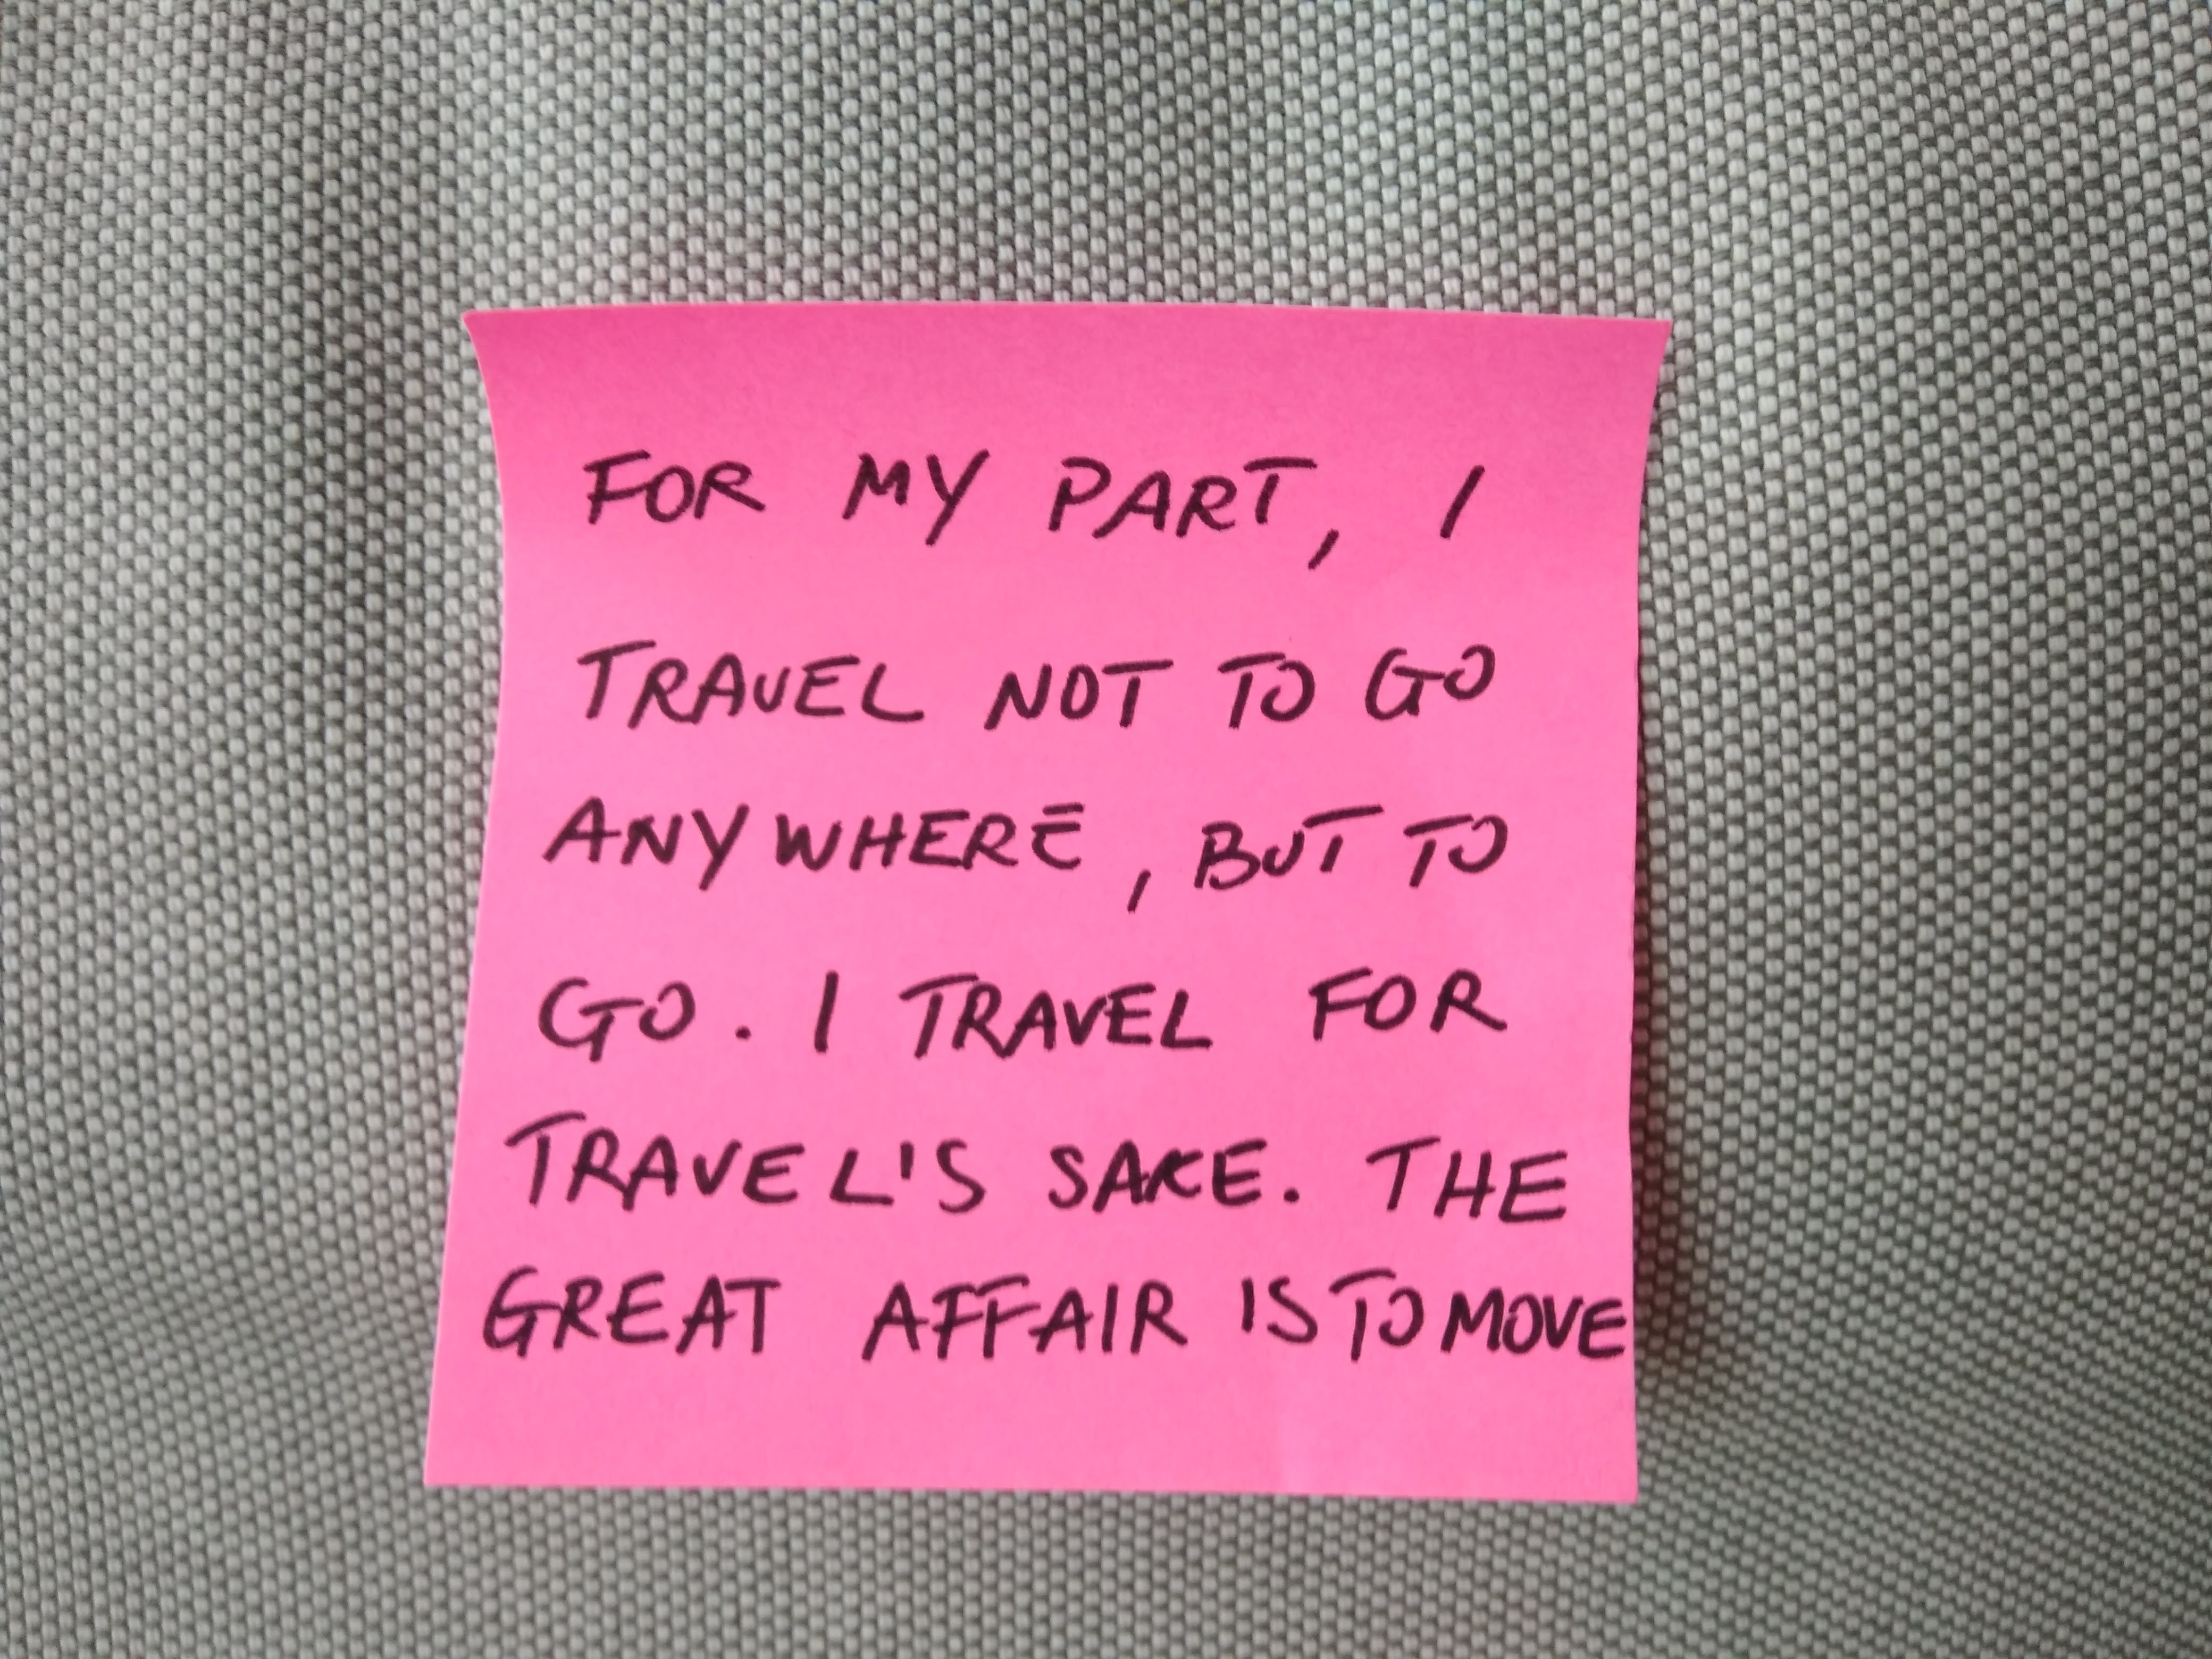 FOR MY PART, I
TRAVEL NOT TO GO
ANYWHERE, BUT TO
GO. I TRAVEL FOR
TRAVEL'S SAKE. THE
GREAT AFFAIR IS TO MOVE